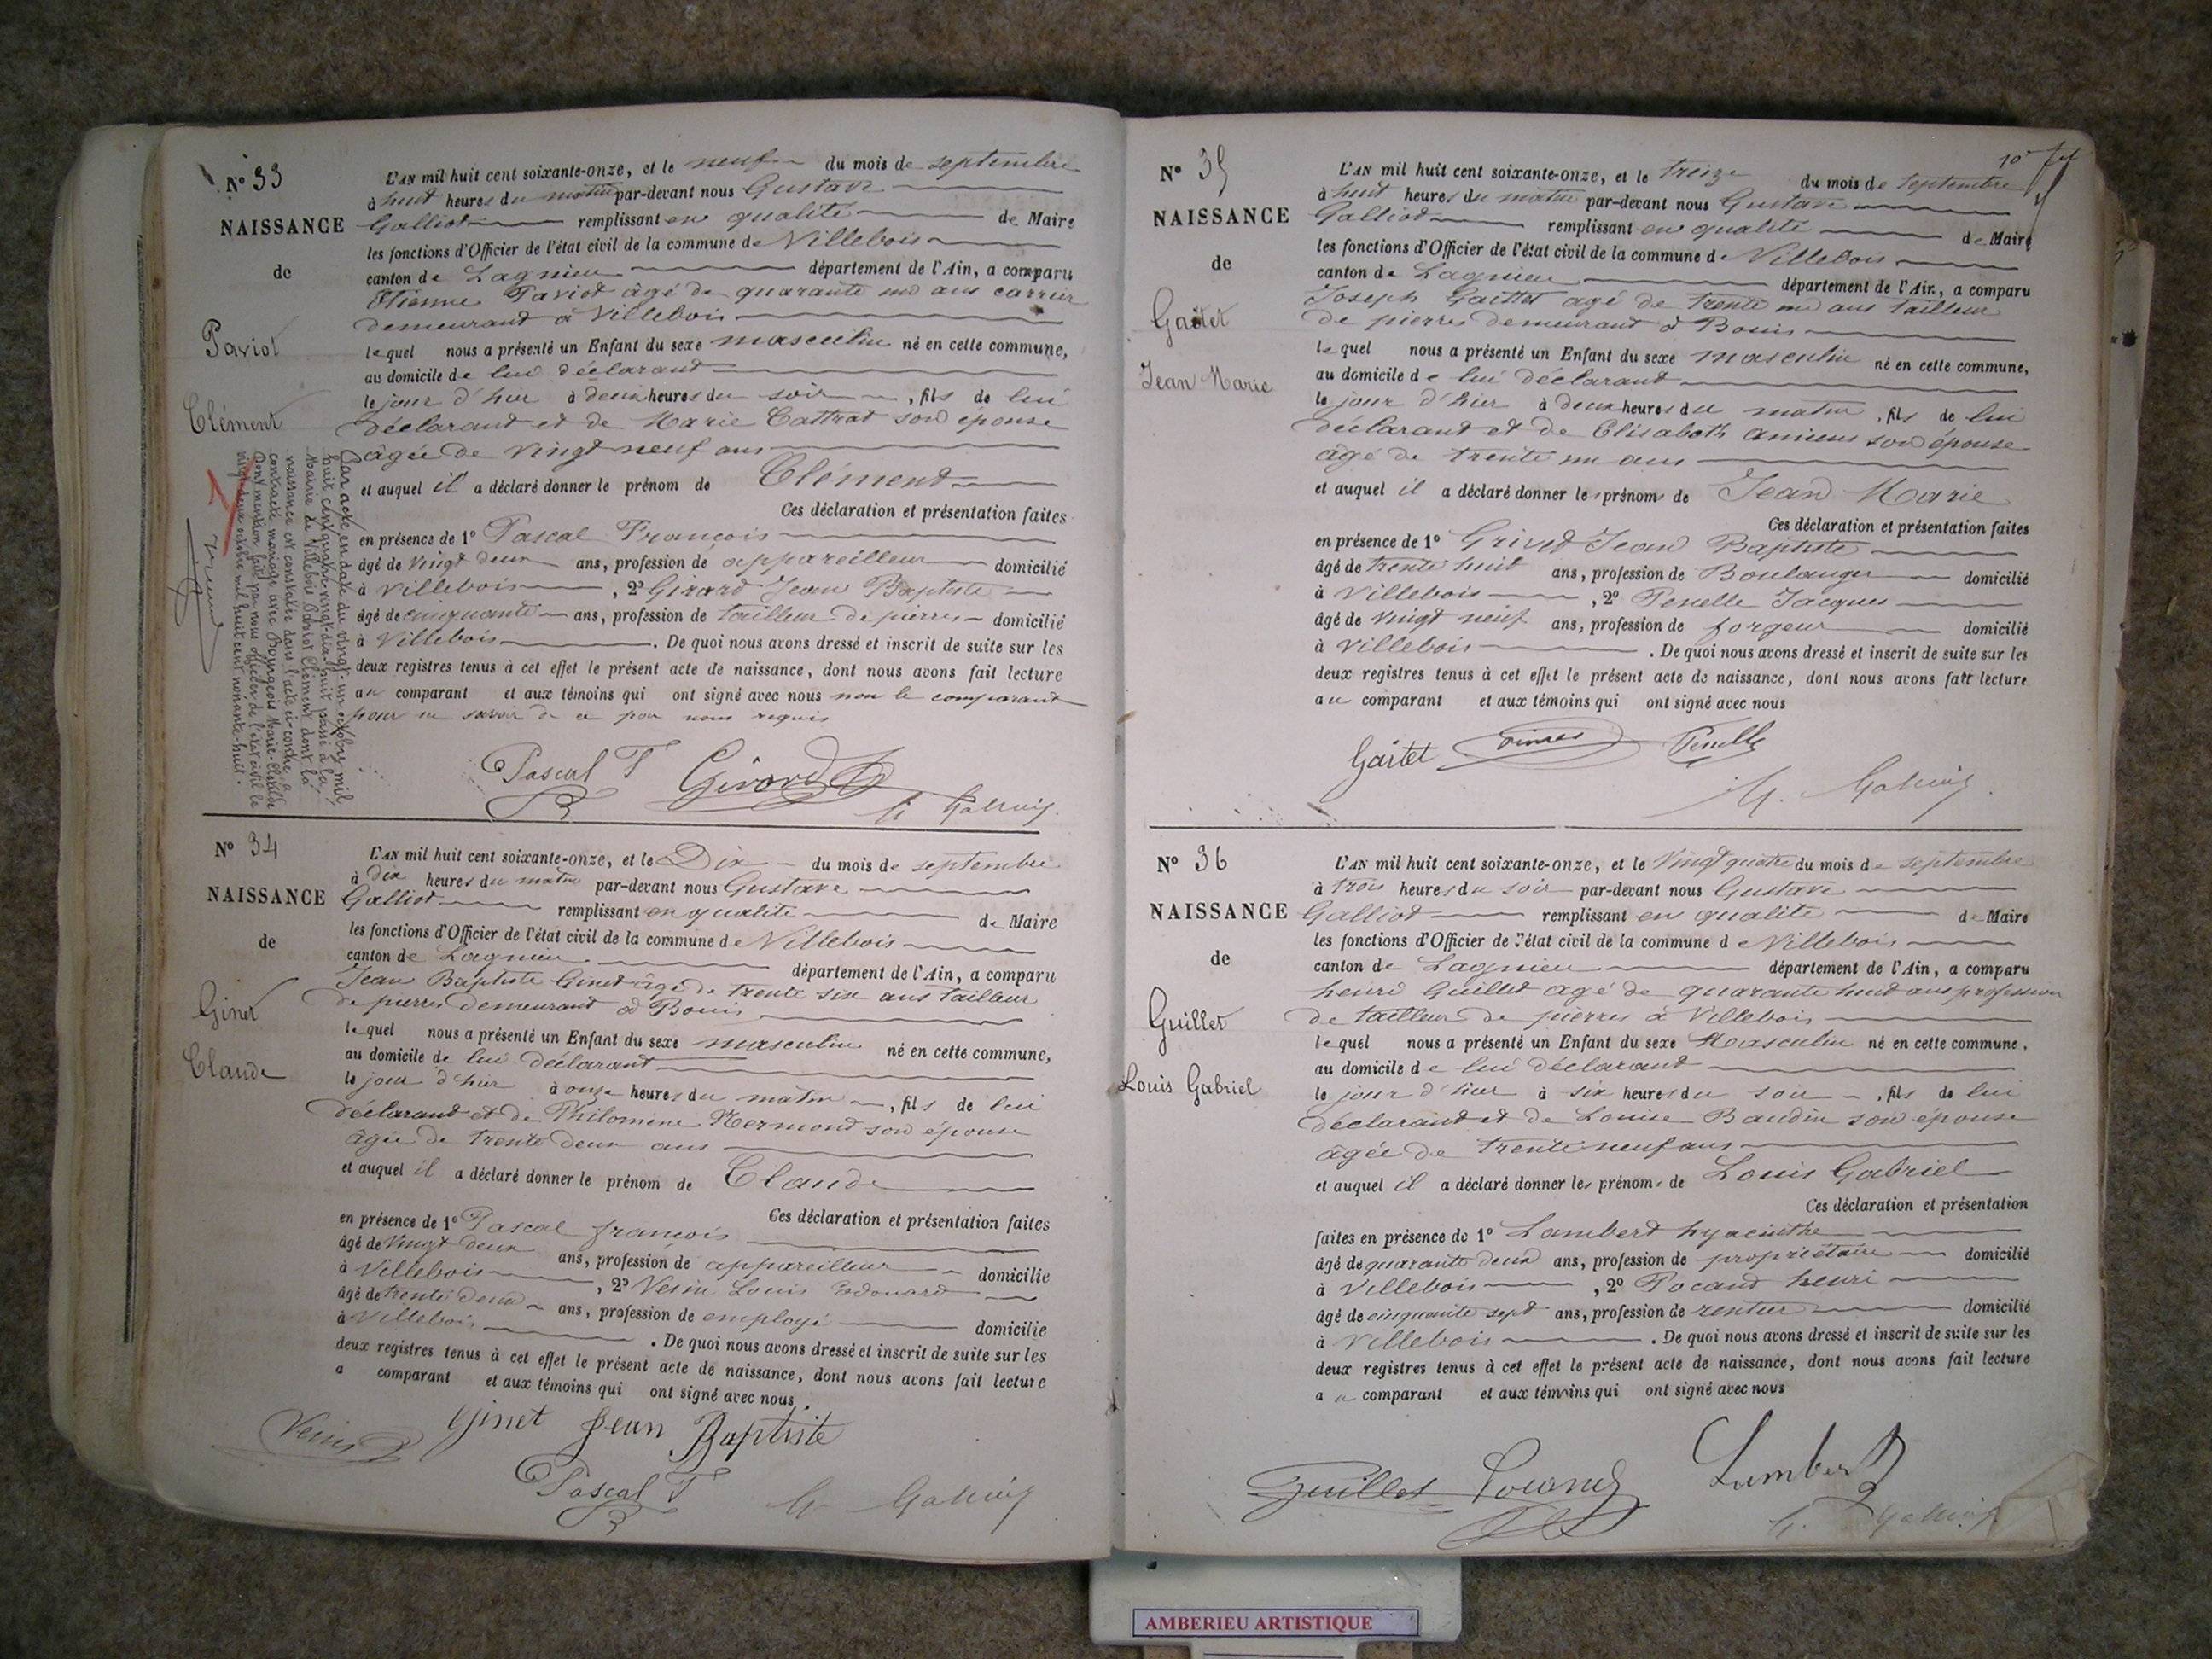 N° 33
NAISSANCE
de
Paviot
Clément
L'AN mil huit cent soixante-onze, et le neuf du mois de septembre
à huit heures du matin par-devant nous Gustave
Galliot remplissant en qualité de Maire
les fonctions d'Officier de l'état civil de la commune de Villebois
canton de Lagnieu département de l'Ain, a comparu
Etienne Paviot âgé de quarante un ans carrier
demeurant à Villebois
lequel nous a présenté un Enfant du sexe masculin né en cette commune,
au domicile de lui déclarant
le jour d'hier à deux heures du soir, fils de lui
déclarant et de Marie Cattrat son épouse
âgée de vingt neuf ans
et auquel il a déclaré donner le prénom de Clément
Ces déclaration et présentation faites
en présence de 1° Pascal François
âgé de vingt deux ans, profession de appareilleur domicilié
à Villebois, 2° Girard Jean Baptiste
âgé de cinquante ans, profession de tailleur de pierres domicilié
à Villebois. De quoi nous avons dressé et inscrit de suite sur les
deux registres tenus à cet effet le présent acte de naissance, dont nous avons fait lecture
au comparant et aux témoins qui ont signé avec nous non le comparant
pour ne savoir de ce par nous requis
Pascal F Girard
G Galliot
Par acte en date du vingt-un octobre mil
huit cent quatre-vingt-dix-huit passé à la
Mairie de Villebois Paviot Clément dont la
naissance est constatée dans l'acte ci-contre a
contracté mariage avec Bourgeois Marie-Clotilde
Dont mention faite par nous officier de l'état civil le
vingt-deux octobre mil huit cent nonante-huit.
N° 34
NAISSANCE
de
Ginet
Claude
L'AN mil huit cent soixante-onze, et le Dix du mois de septembre
à dix heures du matin par-devant nous Gustave
Galliot remplissant en qualité de Maire
les fonctions d'Officier de l'état civil de la commune de Villebois
canton de Lagnieu département de l'Ain, a comparu
Jean Baptiste Ginet âgé de trente six ans tailleur
de pierres demeurant à Bouis
lequel nous a présenté un Enfant du sexe masculin né en cette commune,
au domicile de lui déclarant
le jour d'hier à onze heures du matin, fils de lui
déclarant et de Philomène Mermond son épouse
âgée de trente deux ans
et auquel il a déclaré donner le prénom de Claude
Ces déclaration et présentation faites
en présence de 1° Pascal françois
âgé de vingt deux ans, profession de appareilleur domicilié
à Villebois, 2° Vesin Louis Edouard
âgé de trente deux ans, profession de employé domicilié
à Villebois. De quoi nous avons dressé et inscrit de suite sur les
deux registres tenus à cet effet le présent acte de naissance, dont nous avons fait lecture
a comparant et aux témoins qui ont signé avec nous.
Vesin Ginet Jean Baptiste
Pascal F G Galliot
10e
N° 35
NAISSANCE
de
Gaitet
Jean Marie
L'AN mil huit cent soixante-onze, et le treize du mois de septembre
à huit heures du matin par-devant nous Gustave
Galliot remplissant en qualité de Maire
les fonctions d'Officier de l'état civil de la commune de Villebois
canton de Lagnieu département de l'Ain, a comparu
Joseph Gaittet agé de trente un ans tailleur
de pierres demeurant à Bouis
lequel nous a présenté un Enfant du sexe masculin né en cette commune,
au domicile de lui déclarant
le jour d'hier à deux heures du matin, fils de lui
déclarant et de Elisabeth Amieux son épouse
âgé de trente un ans
et auquel il a déclaré donner les prénoms de Jean Marie
Ces déclaration et présentation faites
en présence de 1° Grivet Jean Baptiste
âgé de trente huit ans, profession de Boulanger domicilié
à Villebois, 2° Penelle Jacques
âgé de vingt neuf ans, profession de forgeur domicilié
à Villebois. De quoi nous avons dressé et inscrit de suite sur les
deux registres tenus à cet effet le présent acte de naissance, dont nous avons fait lecture
au comparant et aux témoins qui ont signé avec nous
Gaitet Penelle
G. Galliot
N° 36
NAISSANCE
de
Guillet
Louis Gabriel
L'AN mil huit cent soixante-onze, et le vingt quatre du mois de septembre
à trois heures du soir par-devant nous Gustave
Galliot remplissant en qualité de Maire
les fonctions d'Officier de l'état civil de la commune de Villebois
canton de Lagnieu département de l'Ain, a comparu
henri Guillet agé de quarante huit ans profession
de tailleur de pierres à Villebois
lequel nous a présenté un Enfant du sexe Masculin né en cette commune,
au domicile de lui déclarant
le jour d'hier à six heures du soir, fils de lui
déclarant et de Louise Baudin son épouse
âgée de trente neuf ans
et auquel il a déclaré donner les prénoms de Louis Gabriel
Ces déclaration et présentation
faites en présence de 1° Lambert hyacinthe
âgé de quarante deux ans, profession de propriétaire domicilié
à Villebois, 2° Pocand henri
âgé de cinquante sept ans, profession de rentier domicilié
à Villebois. De quoi nous avons dressé et inscrit de suite sur les
deux registres tenus à cet effet le présent acte de naissance, dont nous avons fait lecture
au comparant et aux témoins qui ont signé avec nous
Guillet Pocand Lambert
G. Galliot
AMBERIEU ARTISTIQUE